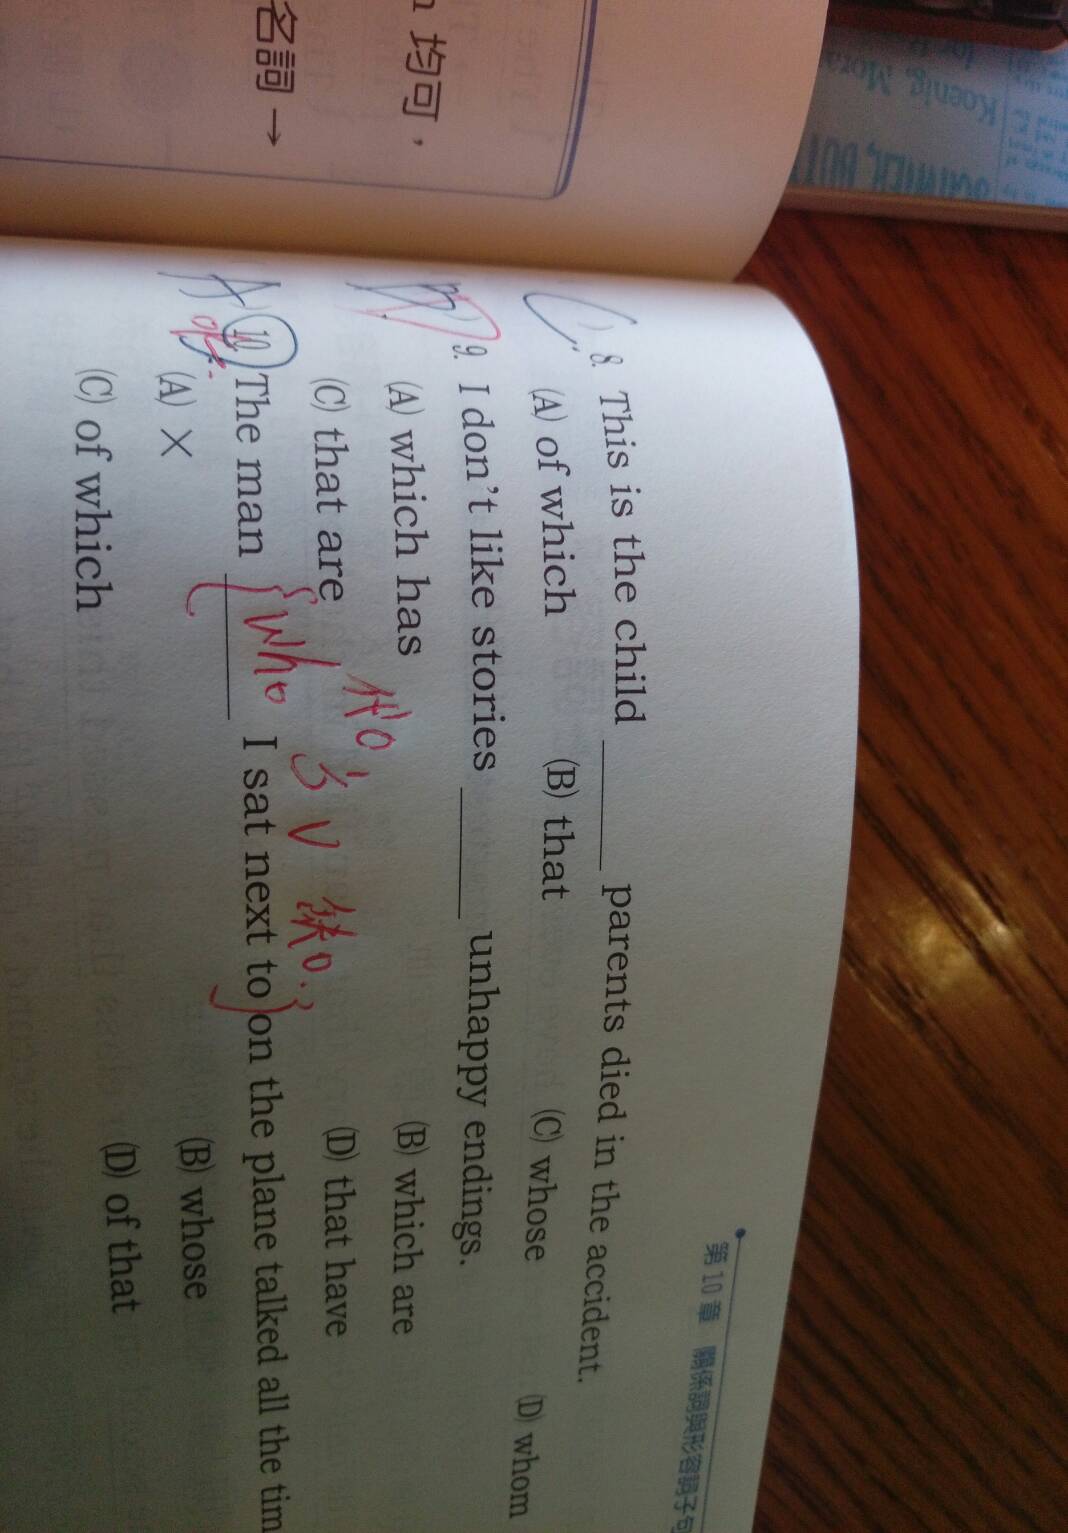 均可，
名詞 →
Koenig, Mora
第 10 章 關係詞與形容詞子句
C 8. This is the child ______ parents died in the accident.
(A) of which (B) that (C) whose (D) whom
9. I don't like stories ______ unhappy endings.
(A) which has (B) which are
(C) that are (D) that have
A 10. The man ______ I sat next to on the plane talked all the tim
who
(A) × (B) whose
(C) of which (D) of that